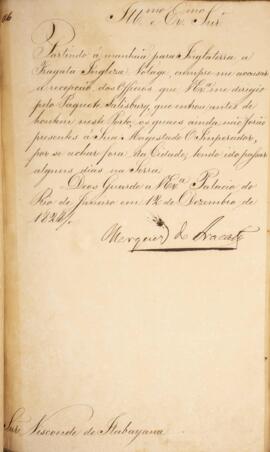 Ill.mo e Ex.mo Snr.
Partindo á manhãa para Inglaterra a
Fragata Ingleza Volage, cumpre-me accusar
a recepção dos Officios que V. Ex.a me dirigio
pelo Paquete Salisbury, que entrou antes de
hontem neste Porto, os quaes ainda não forão
presentes a Sua Magestade O Imperador,
por se achar fora da Cidade, tendo ido passar
alguns dias na Serra.
Deos Guarde a V. Ex.a Palacio do
Rio de Janeiro em 12 de Dezembro de
1828.
Marquez de Aracaty
Snr. Visconde de Itabayana.